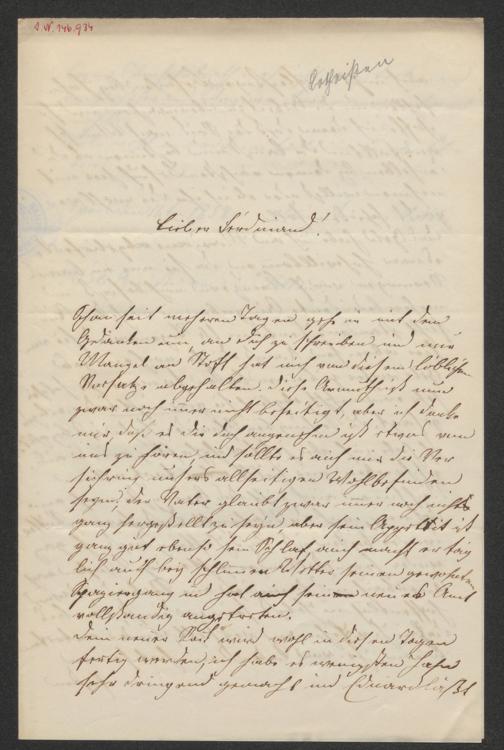 I.N. 146.934
Lieber Ferdinand!
Schon seit mehreren Tagen gehe ich mit dem
Gedanken um, an dich zu schreiben und nur
Mangel an Stoff hat mich von diesem löblichen
Vorsatze abgehalten. Diese Armuth ist nun
zwar noch immer nicht beseitigt, aber ich denke
mir, daß es dir doch angenehm ist etwas von
uns zu hören, und sollte es auch nur die Ver
sicherung unsers allseitigen Wohlbefinden
seyn; der Vater glaubt zwar immer noch nicht
ganz hergestellt zu seyn aber sein Appetit ist
ganz gut ebenso sein Schlaf, auch macht er täg
lich auch bey schlimmen Wetter seinen gewohnten
Spaziergang und hat auch sein neues Amt
vollständig angetreten.
Dein neuer wird wohl in diesen Tagen
fertig werden, ich habe es wenigsten
sehr dringend gemacht und Eduard läßt